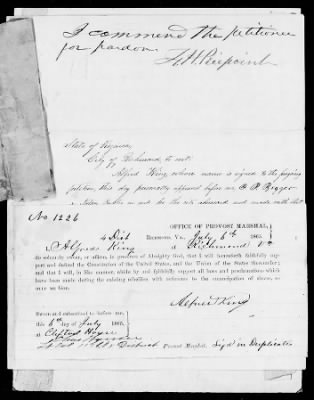 I commend the petitioner
for pardon
F. H. Peirpoint
State of Virginia
City of Richmond to wit:
Alfred King whose name is signed to the foregoing
petition, this day personally appeared before me
No 1226
OFFICE OF PROVOST MARSHAL,
4 Dist Richmond, Va., July 6th 1865.
I Alfred King of Richmond Va
do solemnly swear, or affirm, in presence of Almighty God, that I will henceforth faithfully sup-
port and defend the Constitution of the United States, and the Union of the States thereunder;
and that I will, in like manner, abide by and faithfully support all laws and proclamations which
have been made during the existing rebellion with reference to the emancipation of slaves, so
Alfred King
Sworn and subscribed to before me, this
6th day of July 1865.
District Provost Marshal. Sign'd in Duplicate